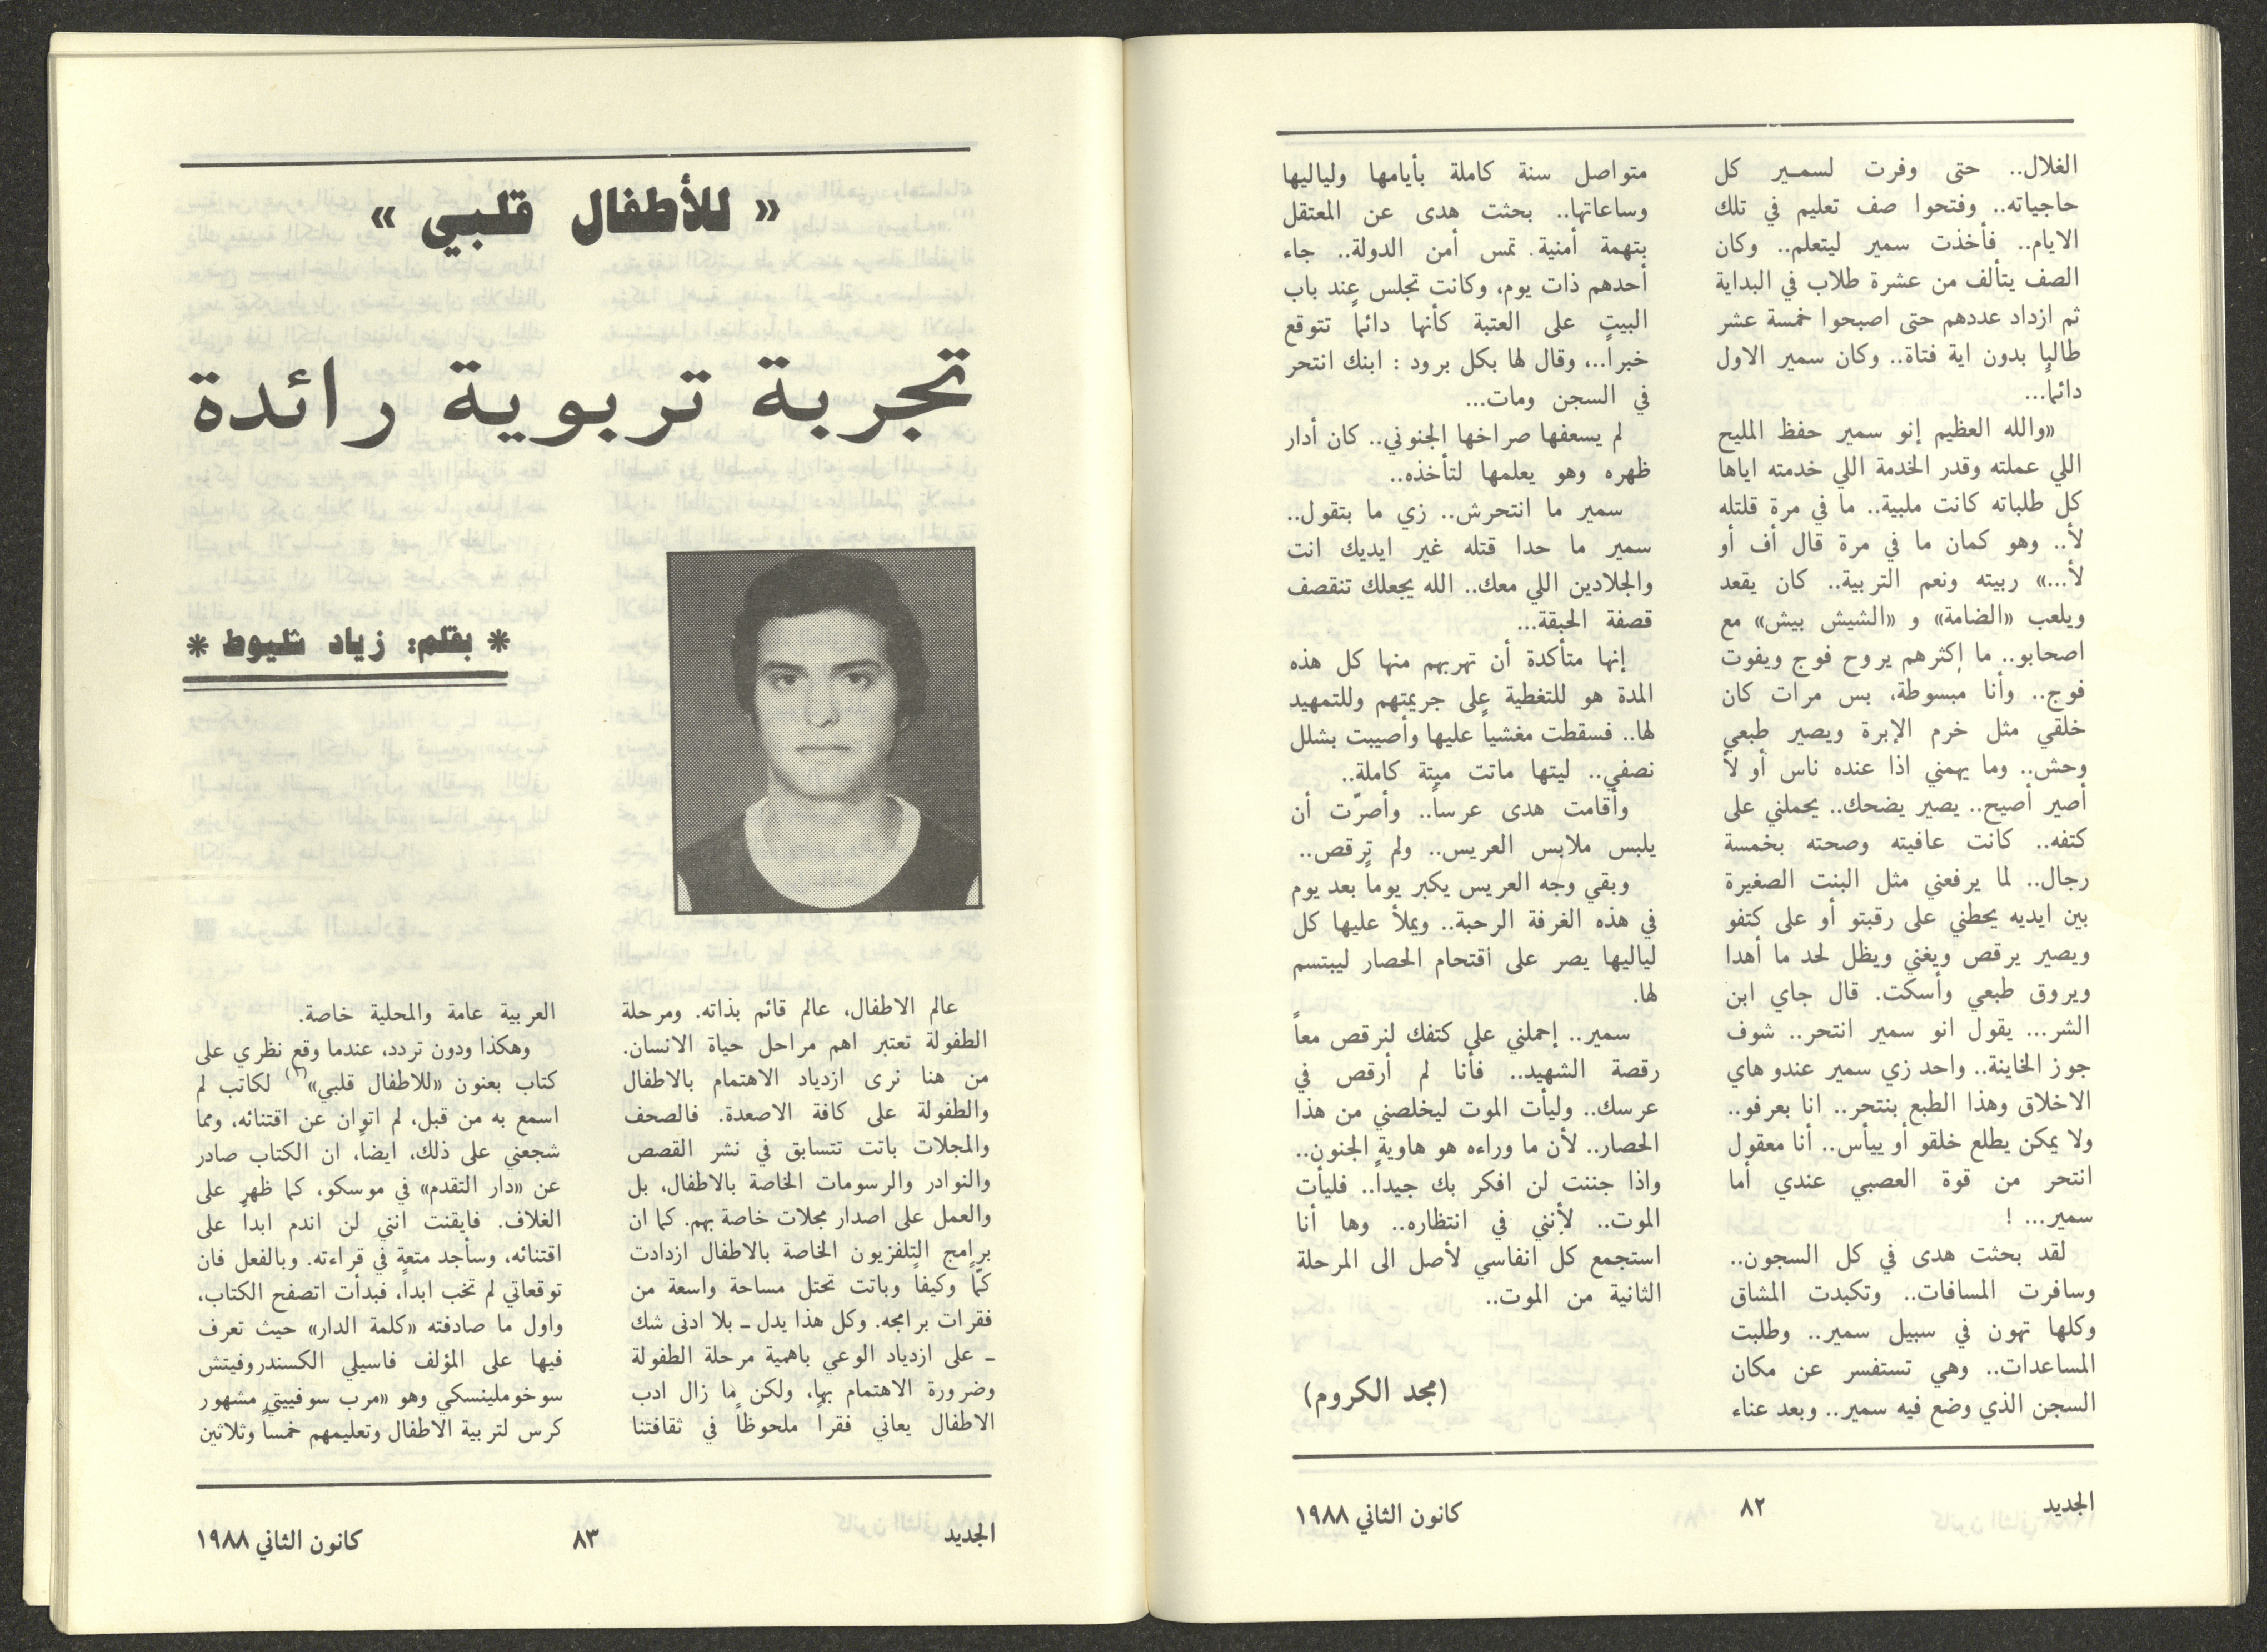 الغلال.. حتى وفرت لسمير كل
حاجياته.. وفتحوا صف تعليم في تلك
الايام.. فأخذت سمير ليتعلم.. وكان
الصف يتألف من عشرة طلاب في البداية
ثم ازداد عددهم حتى اصبحوا خمسة عشر
طالباً بدون اية فتاة.. وكان سمير الاول
دائماً...
«والله العظيم إنو سمير حفظ المليح
اللي عملته وقدر الخدمة اللي خدمته اياها
كل طلباته كانت ملبية.. ما في مرة قلتله
لأ.. وهو كمان ما في مرة قال أف أو
لأ...» ربيته ونعم التربية.. كان يقعد
ويلعب «الضامة» و «الشيش بيش» مع
اصحابو.. ما إكثرهم يروح فوج ويفوت
فوج.. وأنا مبسوطة، بس مرات كان
خلقي مثل خرم الإبرة ويصير طبعي
وحش.. وما يهمني اذا عنده ناس أو لأ
أصير أصيح.. يصير يضحك.. يحملني على
كتفه.. كانت عافيته وصحته بخمسة
رجال.. لما يرفعني مثل البنت الصغيرة
بين ايديه يحطني على رقبتو أو على كتفو
ويصير يرقص ويغني ويظل لحد ما أهدا
ويروق طبعي وأسكت. قال جاي ابن
الشر... يقول انو سمير انتحر.. شوف
جوز الخاينة.. واحد زي سمير عندو هاي
الاخلاق وهذا الطبع بنتحر.. انا بعرفو..
ولا يمكن يطلع خلقو أو ييأس.. أنا معقول
انتحر من قوة العصبي عندي أما
سمير... !
لقد بحثت هدى في كل السجون..
وسافرت المسافات.. وتكبدت المشاق
وكلها تهون في سبيل سمير.. وطلبت
المساعدات.. وهي تستفسر عن مكان
السجن الذي وضع فيه سمير.. وبعد عناء
متواصل سنة كاملة بأيامها ولياليها
وساعاتها.. بحثت هدى عن المعتقل
بتهمة أمنية. تمس أمن الدولة.. جاء
أحدهم ذات يوم، وكانت تجلس عند باب
البيت على العتبة كأنها دائماً تتوقع
خبراً..، وقال لها بكل برود : ابنك انتحر
في السجن ومات...
لم يسعفها صراخها الجنوني.. كان أدار
ظهره وهو يعلمها لتأخذه..
سمير ما انتحرش.. زي ما بتقول..
سمير ما حدا قتله غير ايديك انت
والجلادين اللي معك.. الله يجعلك تنقصف
قصفة الحبقة...
إنها متأكدة أن تهربهم منها كل هذه
المدة هو للتغطية على جريمتهم وللتمهيد
لها.. فسقطت مغشياً عليها وأصيبت بشلل
نصفي.. ليتها ماتت ميتة كاملة..
وأقامت هدى عرساً.. وأصرّت أن
يلبس ملابس العريس.. ولم ترقص..
وبقي وجه العريس يكبر يوماً بعد يوم
في هذه الغرفة الرحبة.. ويملأ عليها كل
لياليها يصر على اقتحام الحصار ليبتسم
لها.
سمير.. إحملني على كتفك لنرقص معاً
رقصة الشهيد.. فأنا لم أرقص في
عرسك.. وليأت الموت ليخلصني من هذا
الحصار.. لأن ما وراءه هو هاوية الجنون..
واذا جننت لن افكر بك جيداً.. فليأت
الموت.. لأنني في انتظاره.. وها أنا
استجمع كل انفاسي لأصل الى المرحلة
الثانية من الموت..
(مجد الكروم)
الجديد
٨٢
كانون الثاني ١٩٨٨
« للأطفال قلبي »
تجربة تربوية رائدة
* بقلم: زياد شليوط *
عالم الاطفال، عالم قائم بذاته. ومرحلة
الطفولة تعتبر اهم مراحل حياة الانسان.
من هنا نرى ازدياد الاهتمام بالاطفال
والطفولة على كافة الاصعدة. فالصحف
والمجلات باتت تتسابق في نشر القصص
والنوادر والرسومات الخاصة بالاطفال، بل
والعمل على اصدار مجلات خاصة بهم. كما ان
برامج التلفزيون الخاصة بالاطفال ازدادت
كمّاً وكيفاً وباتت تحتل مساحة واسعة من
فقرات برامجه. وكل هذا يدل ـ بلا ادنى شك
ـ على ازدياد الوعي باهمية مرحلة الطفولة
وضرورة الاهتمام بها، ولكن ما زال ادب
الاطفال يعاني فقراً ملحوظاً في ثقافتنا
العربية عامة والمحلية خاصة.
وهكذا ودون تردد، عندما وقع نظري على
كتاب بعنون «للاطفال قلبي»(١) لكاتب لم
اسمع به من قبل، لم اتوان عن اقتنائه، ومما
شجعني على ذلك، ايضاً، ان الكتاب صادر
عن «دار التقدم» في موسكو، كما ظهر على
الغلاف. فايقنت انني لن اندم ابداً على
اقتنائه، وسأجد متعة في قراءته. وبالفعل فان
توقعاتي لم تخب ابداً، فبدأت اتصفح الكتاب،
واول ما صادفته «كلمة الدار» حيث تعرف
فيها على المؤلف فاسيلي الكسندروفيتش
سوخوملينسكي وهو «مرب سوفييتي مشهور
كرس لتربية الاطفال وتعليمهم خمساً وثلاثين
الجديد
٨٣
كانون الثاني ١٩٨٨